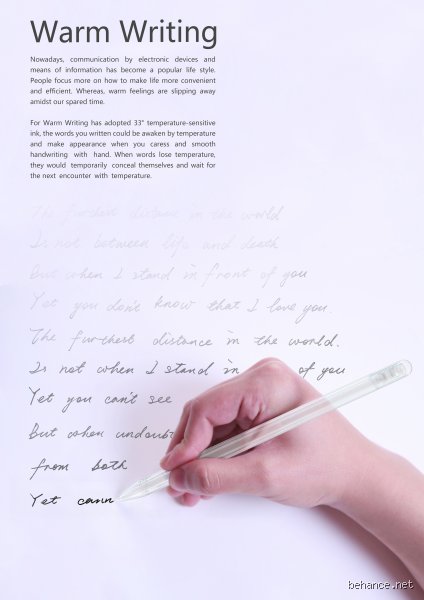 Warm Writing
Nowadays, communication by electronic devices and
means of information has become a popular life style.
People focus more on how to make life more convenient
and efficient. Whereas, warm feelings are slipping away
amidst our spared time.
For Warm Writing has adopted 33° temperature-sensitive
ink, the words you written could be awaken by temperature
and make appearance when you caress and smooth
handwriting with hand. When words lose temperature,
they would temporarily conceal themselves and wait for
the next encounter with temperature.
The furthest distance in the world
Is not between life and death
But when I stand in front of you
Yet you don't know that I love you.
The furthest distance in the world.
Is not when I stand in of you
Yet you can't see
But when undoubt
from both
Yet cann
behance.net